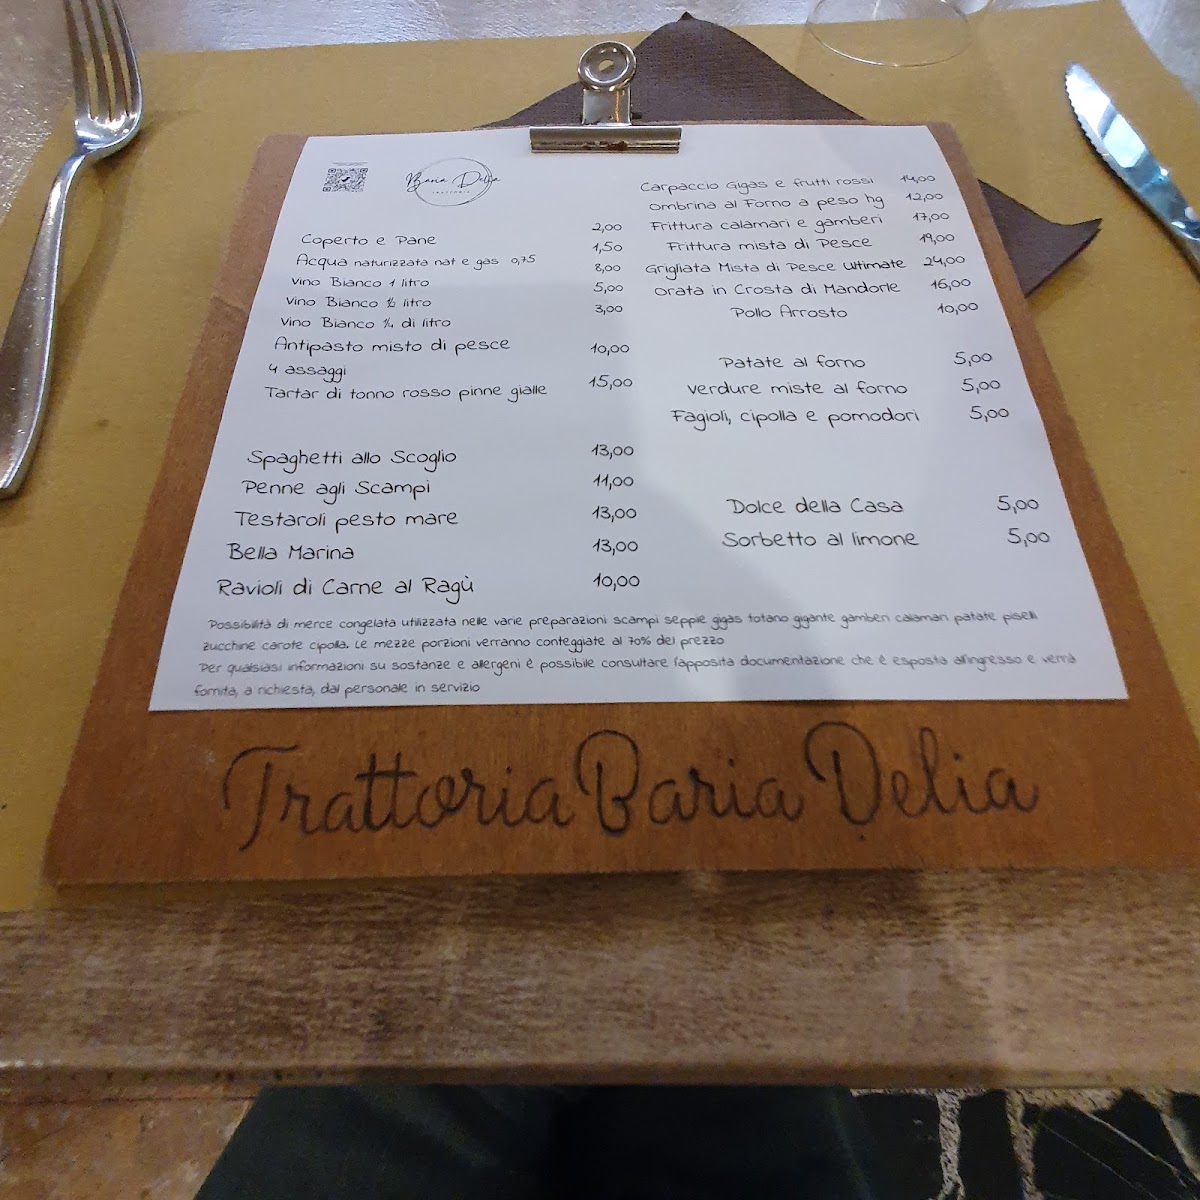 Baria Delia
TRATTORIA
Coperto e Pane 2,00
Acqua naturizzata nat e gas 0,75 1,50
Vino Bianco 1 litro 8,00
Vino Bianco ½ litro 5,00
Vino Bianco ¼ di litro 3,00
Antipasto misto di pesce 10,00
4 assaggi
Tartar di tonno rosso pinne gialle 15,00
Spaghetti allo Scoglio 13,00
Penne agli Scampi 11,00
Testaroli pesto mare 13,00
Bella Marina 13,00
Ravioli di Carne al Ragù 10,00
Carpaccio Gigas e frutti rossi 14,00
Ombrina al Forno a peso hg 12,00
Frittura calamari e gamberi 17,00
Frittura mista di Pesce 19,00
Grigliata Mista di Pesce Ultimate 24,00
Orata in Crosta di Mandorle 16,00
Pollo Arrosto 10,00
Patate al forno 5,00
Verdure miste al forno 5,00
Fagioli, cipolla e pomodori 5,00
Dolce della Casa 5,00
Sorbetto al limone 5,00
Possibilità di merce congelata utilizzata nelle varie preparazioni scampi seppie gigas totano gigante gamberi calamari patate piselli
zucchine carote cipolla. Le mezze porzioni verranno conteggiate al 70% del prezzo
Per qualsiasi informazioni su sostanze e allergeni è possibile consultare l'apposita documentazione che è esposta all'ingresso e verrà
fornita, a richiesta, dal personale in servizio
Trattoria Baria Delia